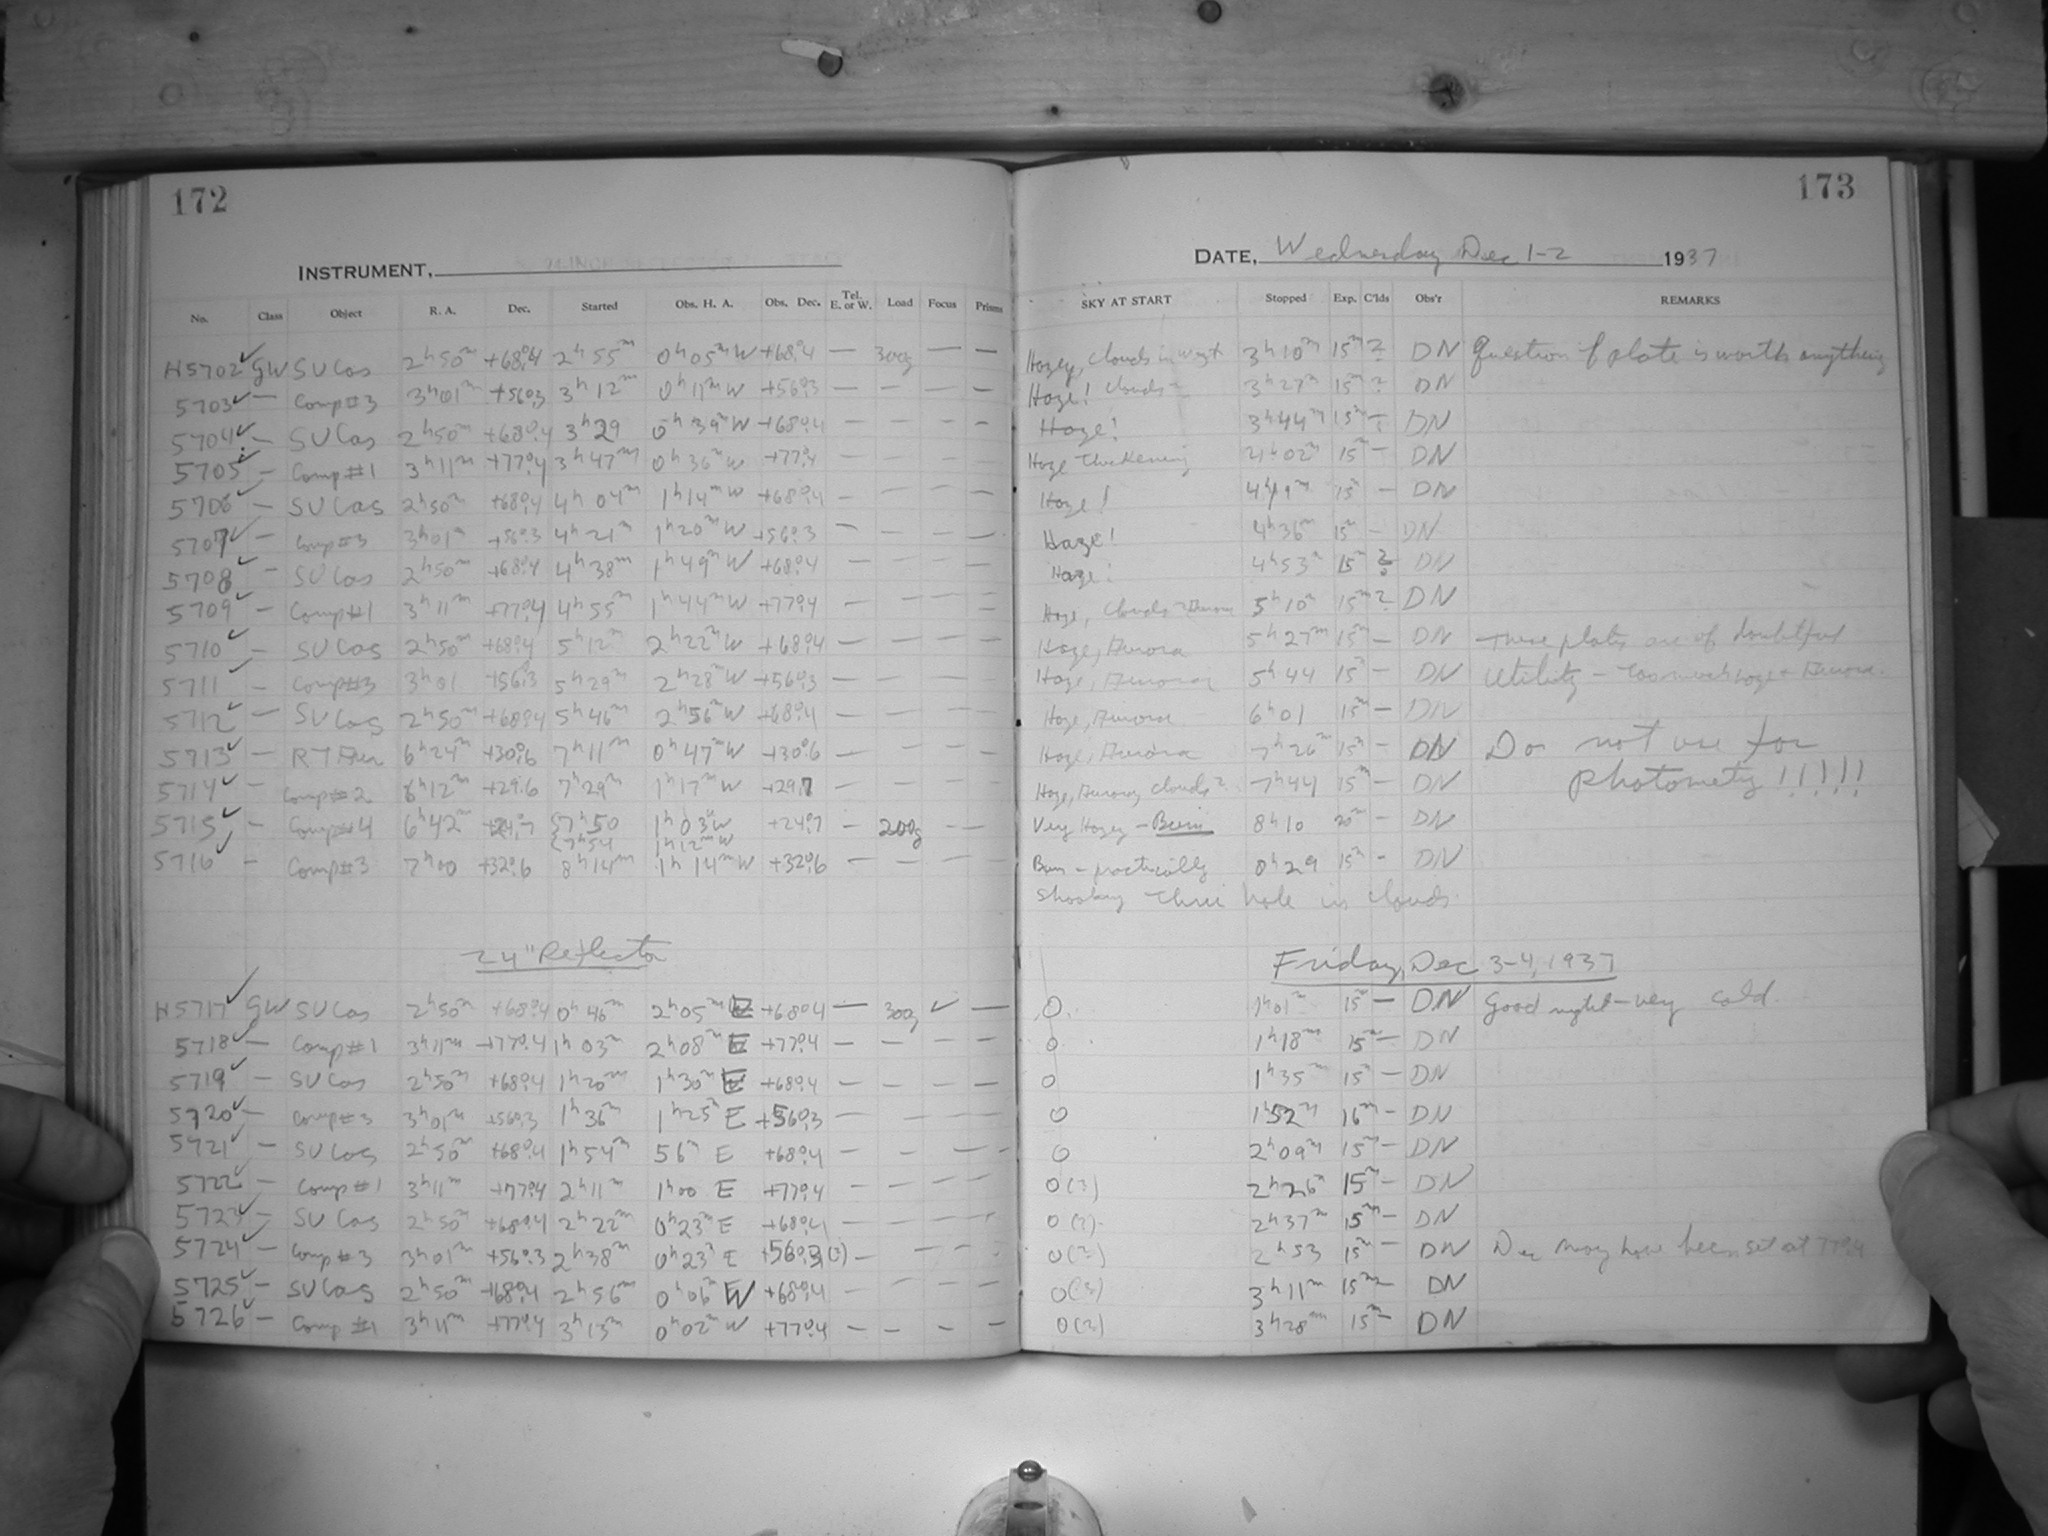 172
INSTRUMENT,
No. Class Object R. A. Dec. Started Obs. H. A. Obs. Dec. Tel. E. or W. Load Focus Prisms
H5702 ✓ GW SU Cas 2h50m +68°.4 2h55m 0h05m W +68°.4 — 300g — —
5703 ✓ — Comp #3 3h01m +56°.3 3h12m 0h11m W +56°.3 — — — —
5704 ✓ — SU Cas 2h50m +68°.4 3h29 0h39m W +68°.4 — — — —
5705 ✓ — Comp #1 3h11m +77°.4 3h47m 0h36m W +77°.4 — — — —
5706 ✓ — SU Cas 2h50m +68°.4 4h04m 1h14m W +68°.4 — — — —
5707 ✓ — Comp #3 3h01m +56°.3 4h21m 1h20m W +56°.3 — — — —
5708 ✓ — SU Cas 2h50m +68°.4 4h38m 1h49m W +68°.4 — — — —
5709 ✓ — Comp #1 3h11m +77°.4 4h55m 1h44m W +77°.4 — — — —
5710 ✓ — SU Cas 2h50m +68°.4 5h12m 2h22m W +68°.4 — — — —
5711 ✓ — Comp #3 3h01 +56°.3 5h29m 2h28m W +56°.3 — — — —
5712 ✓ — SU Cas 2h50m +68°.4 5h46m 2h56m W +68°.4 — — — —
5713 ✓ — RT Aur 6h24m +30°.6 7h11m 0h47m W +30°.6 — — — —
5714 ✓ — Comp #2 6h12m +29.6 7h29m 1h17m W +29.7 — — — —
5715 ✓ — Comp #4 6h42m +24°.7 {7h50 1h03m W +24°.7 — 200g — —
{7h54 1h12m W
5716 ✓ — Comp #3 7h00 +32°.6 8h14m 1h14m W +32°.6 — — — —
24" Reflector
H5717 ✓ GW SU Cas 2h50m +68°.4 0h46m 2h05m E +68°.4 — 300g ✓ —
5718 ✓ — Comp #1 3h11m +77°.4 1h03m 2h08m E +77°.4 — — — —
5719 ✓ — SU Cas 2h50m +68°.4 1h20m 1h30m E +68°.4 — — — —
5720 ✓ — Comp #3 3h01m +56°.3 1h36m 1h25m E +56°.3 — — — —
5721 ✓ — SU Cas 2h50m +68°.4 1h54m 56m E +68°.4 — — — —
5722 ✓ — Comp #1 3h11m +77°.4 2h11m 1h00 E +77°.4 — — — —
5723 ✓ — SU Cas 2h50m +68°.4 2h22m 0h23m E +68°.4 — — — —
5724 ✓ — Comp #3 3h01m +56°.3 2h38m 0h23m E +56°.3(?) — — — —
5725 ✓ — SU Cas 2h50m +68°.4 2h56m 0h06m W +68°.4 — — — —
5726 ✓ — Comp #1 3h11m +77°.4 3h13m 0h02m W +77°.4 — — — —
173
DATE, Wednesday Dec 1-2 1937
SKY AT START Stopped Exp. C'lds Obs'r REMARKS
Hazey, clouds in west 3h10m 15m ? DN Question if plate is worth anything
Haze! clouds? 3h27m 15m ? DN
Haze! 3h44m 15m — DN
Haze thickening 4h02m 15m — DN
Haze! 4h19m 15m — DN
Haze! 4h36m 15m — DN
Haze! 4h53m 15m ? DN
Haze, clouds? Aurora 5h10m 15m ? DN
Haze, Aurora 5h27m 15m — DN These plates are of doubtful
Haze, Aurora 5h44 15m — DN utility — too much haze + Aurora.
Haze, Aurora 6h01 15m — DN
Haze, Aurora 7h26m 15m — DN Do not use for
Haze, Aurora, clouds? 7h44 15m — DN photometry!!!!!
Very Hazey — Bum 8h10 20m — DN
Bum — practically 0h29 15m — DN
shooting thru hole in clouds
Friday, Dec 3-4, 1937
0 1h01m 15m — DN Good night — very cold
0 1h18m 15m — DN
0 1h35m 15m — DN
0 1h52m 16m — DN
0 2h09m 15m — DN
0(?) 2h26m 15m — DN
0(?) 2h37m 15m — DN
0(?) 2h53 15m — DN Dec may have been set at 77°.4
0(?) 3h11m 15m — DN
0(?) 3h28m 15m — DN